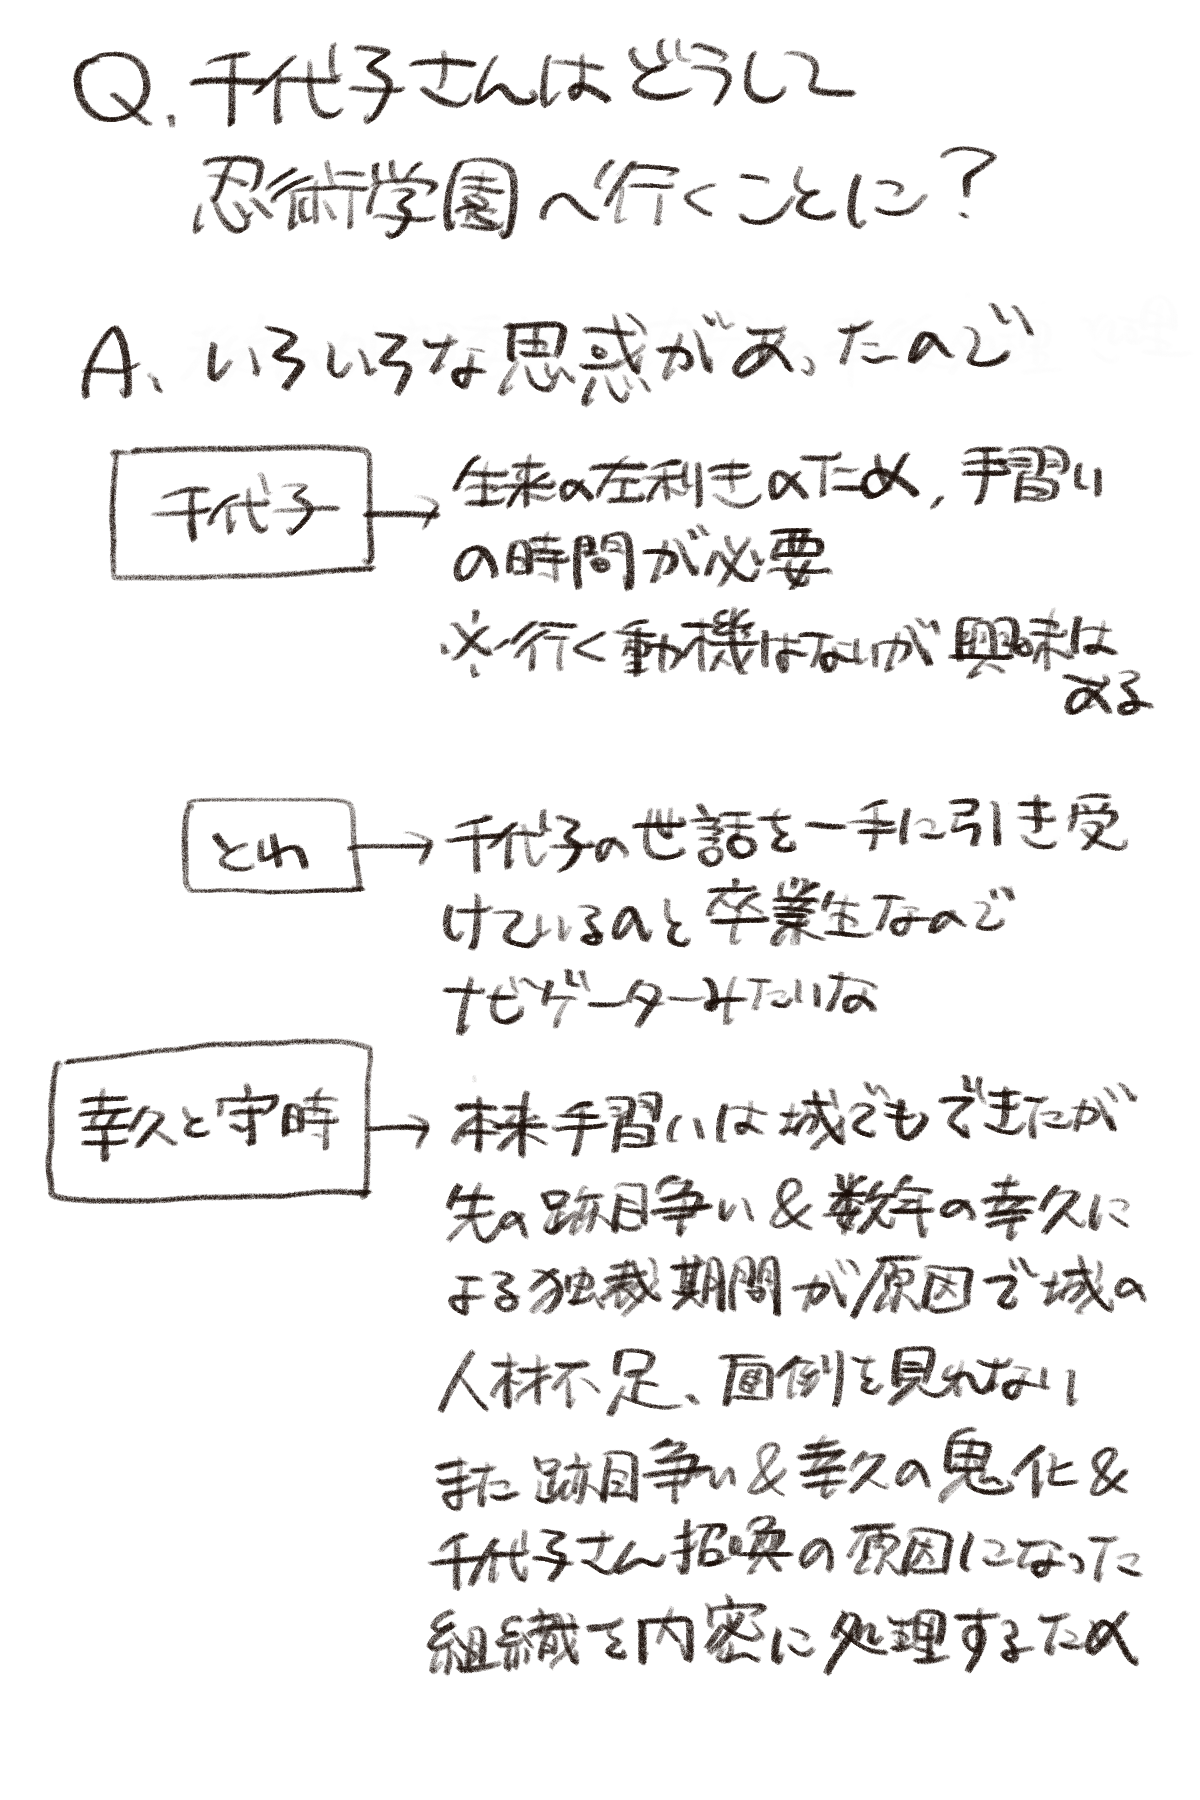 Q.千代子さんはどうして
忍術学園へ行くことに?
A、いろいろな思惑があったので
千代子→生来の左利きのため、手習い
の時間が必要
※行く動機はないが興味は
ある
とわ→千代子の世話を一手に引き受
けているのと卒業生なので
ナビゲーターみたいな
幸久と守時→本来手習いは城でもできたが
先の跡目争い&数年の幸久に
よる独裁期間が原因で城の
人材不足、面倒を見れない
また跡目争い&幸久の鬼化&
千代子さん招喚の原因になった
組織を内密に処理するため